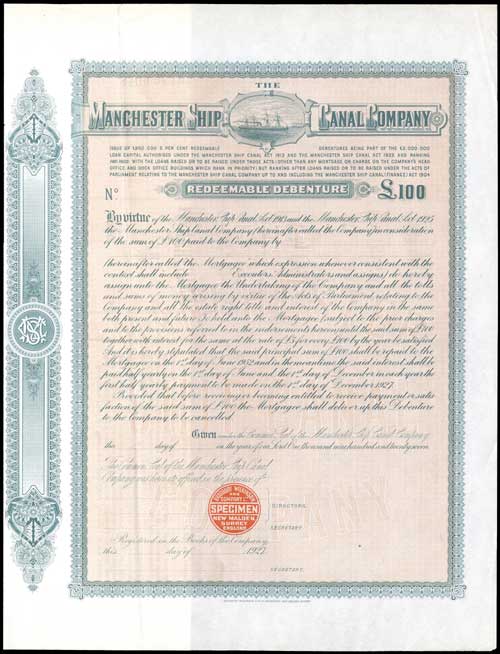 THE
MANCHESTER SHIP CANAL COMPANY
ISSUE OF 1,950 000 5 PER CENT REDEEMABLE DEBENTURES BEING PART OF THE £2,000 000
LOAN CAPITAL AUTHORISED UNDER THE MANCHESTER SHIP CANAL ACT 1913 AND THE MANCHESTER SHIP CANAL ACT 1925 AND RANKING
PARI PASSU WITH THE LOANS RAISED OR TO BE RAISED UNDER THOSE ACTS (OTHER THAN ANY MORTGAGE OR CHARGE ON THE COMPANY'S HEAD
OFFICE AND DOCK OFFICE BUILDINGS WHICH RANK IN PRIORITY) BUT RANKING AFTER LOANS RAISED OR TO BE RAISED UNDER THE ACTS OF
PARLIAMENT RELATING TO THE MANCHESTER SHIP CANAL COMPANY UP TO AND INCLUDING THE MANCHESTER SHIP CANAL (FINANCE) ACT 1904
No REDEEMABLE DEBENTURE £100
By virtue of the Manchester Ship Canal Act 1913 and the Manchester Ship Canal Act 1925
the Manchester Ship Canal Company (hereinafter called the Company) in consideration
of the sum of £100 paid to the Company by
(hereinafter called the Mortgagee which expression whenever consistent with the
context shall include Executors Administrators and assigns) do hereby
assign unto the Mortgagee the Undertaking of the Company and all the tolls
and sums of money arising by virtue of the Acts of Parliament relating to the
Company and all the estate right title and interest of the Company in the same
both present and future to hold unto the Mortgagee (subject to the prior charges
and to the provisions referred to in the indorsements hereon) until the said sum of £100
together with interest for the same at the rate of £5 for every £100 by the year be satisfied
And it is hereby stipulated that the said principal sum of £100 shall be repaid to the
Mortgagee on the 1st day of June and in the meantime the said interest shall be
paid half yearly on the 1st day of June and the 1st day of December in each year the
first half yearly payment to be made on the 1st day of December 1927.
Provided that before receiving or becoming entitled to receive payment or satis-
faction of the said sum of £100 the Mortgagee shall deliver up this Debenture
to the Company to be cancelled
Given under the Common Seal of the Manchester Ship Canal Company
this day of in the year of our Lord One thousand nine hundred and twenty seven
The Common Seal of the Manchester Ship Canal
Company was hereunto affixed in the presence of
BRADBURY WILKINSON
AND
COMPANY LD.
SPECIMEN
NEW MALDEN
SURREY
ENGLAND
DIRECTORS.
SECRETARY.
Registered in the Books of the Company
this day of 1927.
SECRETARY.